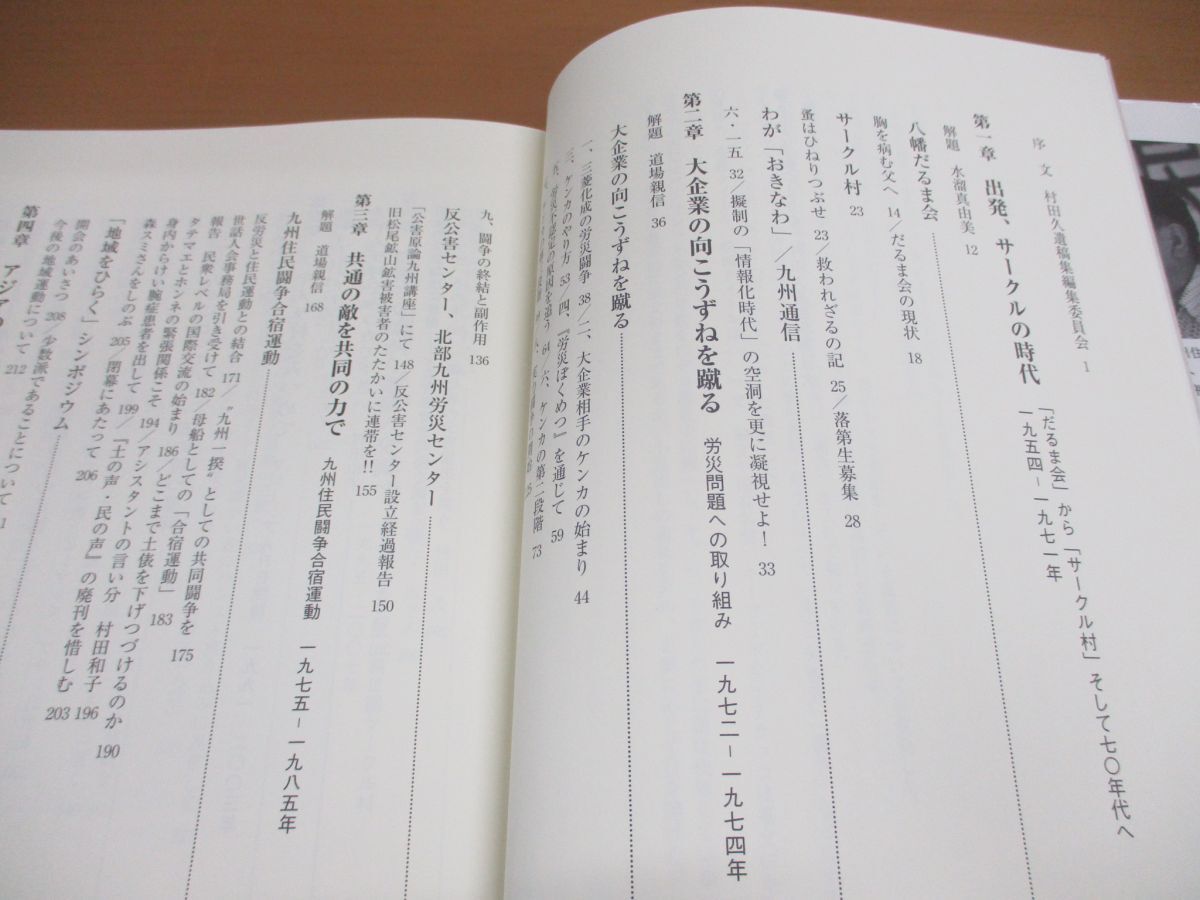 序 文 村田久遺稿集編集委員会 1
第一章 出発、サークルの時代 「だるま会」から「サークル村」そして七〇年代へ
一九五四－一九七一年
解題 水溜真由美 12
八幡だるま会
胸を病む父へ 14／だるま会の現状 18
サークル村 23
蚤はひねりつぶせ 23／救われざるの記 25／落第生募集 28
わが「おきなわ」／九州通信
六・一五 32／擬制の「情報化時代」の空洞を更に凝視せよ！ 33
第二章 大企業の向こうずねを蹴る 労災問題への取り組み 一九七二－一九七四年
解題 道場親信 36
大企業の向こうずねを蹴る
一、三菱化成の労災闘争 38／二、大企業相手のケンカの始まり 44
三、ケンカのやり方 53／四、『労災ぼくめつ』を通じて 59
五、労災不認定の原因を追う 64／六、ケンカの第二段階 73
九、闘争の終結と副作用 136
反公害センター、北部九州労災センター
「公害原論九州講座」にて 148／反公害センター設立経過報告 150
旧松尾鉱山鉱害被害者のたたかいに連帯を!! 155
第三章 共通の敵を共同の力で 九州住民闘争合宿運動 一九七五－一九八五年
解題 道場親信 168
九州住民闘争合宿運動
反労災と住民運動との結合 171／〝九州一揆〟としての共同闘争を 175
世話人会事務局を引き受けて 182／母船としての「合宿運動」 183
報告 民衆レベルの国際交流の始まり 186／どこまで土俵を下げつづけるのか 190
タテマエとホンネの緊張関係こそ 194／アシスタントの言い分 村田和子 196
身内からけい腕症患者を出して 199／『土の声・民の声』の廃刊を惜しむ 203
森スミさんをしのぶ 205／閉幕にあたって 206
「地域をひらく」シンポジウム
開会のあいさつ 208／少数派であることについて
今後の地域運動について 212
第四章 アジア